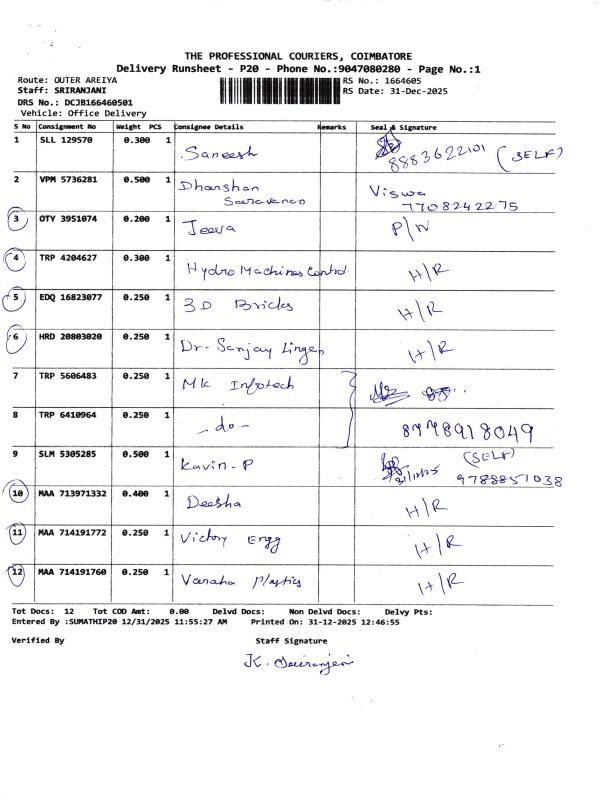 THE PROFESSIONAL COURIERS, COIMBATORE
Delivery Runsheet - P20 - Phone No.:9047080280 - Page No.:1
Route: OUTER AREIYA
RS No.: 1664605
Staff: SRIRANJANI
RS Date: 31-Dec-2025
DRS No.: DCJB166460501
Vehicle: Office Delivery
S No Consignment No Weight PCS Consignee Details Remarks Seal & Signature
1 SLL 129570 0.300 1 Saneesh 8883622101 (SELF)
2 VPM 5736281 0.500 1 Dharshan Saravanan Viswa 7708242275
3 OTY 3951074 0.200 1 Jeeva P/N
4 TRP 4204627 0.300 1 Hydro Machines Control H/R
5 EDQ 16823077 0.250 1 3D Bricks H/R
6 HRD 20803020 0.250 1 Dr. Sanjay Lingen H/R
7 TRP 5606483 0.250 1 MK Infotech
8 TRP 6410964 0.250 1 - do - 8978918049
9 SLM 5305285 0.500 1 Kavin - P (SELF) 31/12/25 9788851038
10 MAA 713971332 0.400 1 Deesha H/R
11 MAA 714191772 0.250 1 Victory Engg H/R
12 MAA 714191760 0.250 1 Varaha Plastics H/R
Tot Docs: 12 Tot COD Amt: 0.00 Delvd Docs: Non Delvd Docs: Delvy Pts:
Entered By :SUMATHIP20 12/31/2025 11:55:27 AM Printed On: 31-12-2025 12:46:55
Verified By Staff Signature
K.